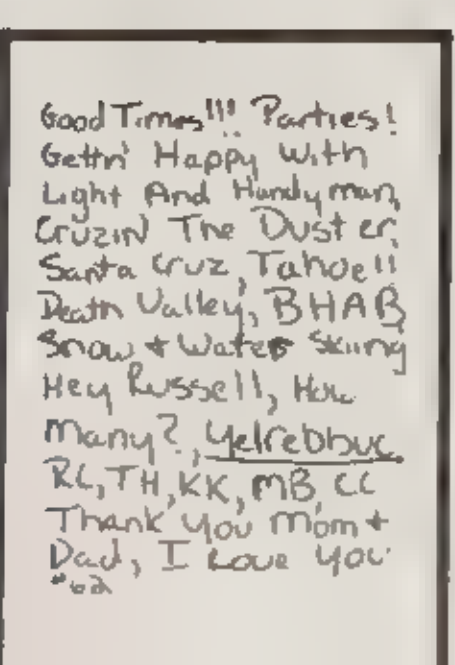 Good Times!!! Parties!
Gettn' Happy With
Light And Handyman,
Cruzin The Duster,
Santa Cruz, Tahoe!!
Death Valley, BHAB
Snow + Water Skiing
Hey Russell, How
Many?, Yelrebbuc
RC, TH, KK, MB, CC
Thank You Mom +
Dad, I Love You
"62